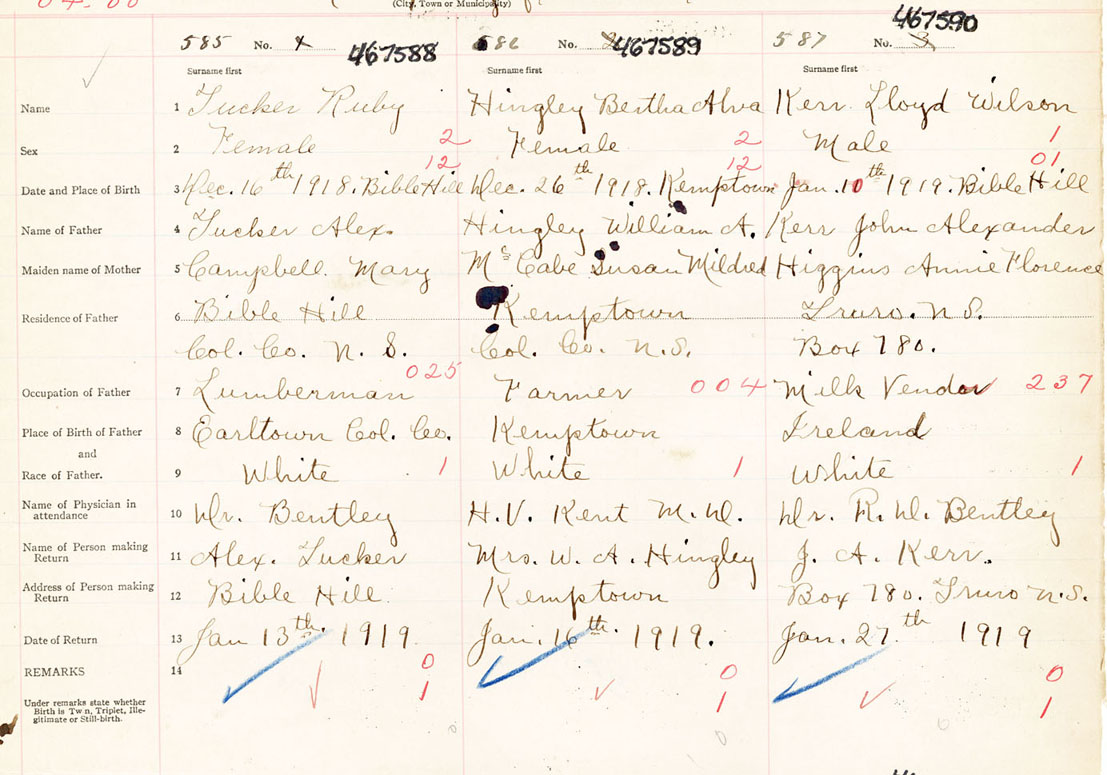 (City, Town or Municipality)
585 No. 467588 586 No. 467589 587 No. 3 467590
Surname first Surname first Surname first
Name 1 Tucker Ruby Hingley Bertha Alva Kerr Lloyd Wilson
Sex 2 Female 2 Female 2 Male 1
12 12 01
Date and Place of Birth 3 Dec. 16th 1918. Bible Hill Dec. 26th 1918. Kemptown Jan. 10th 1919. Bible Hill
Name of Father 4 Tucker Alex. Hingley William A. Kerr John Alexander
Maiden name of Mother 5 Campbell. Mary McCabe Susan Mildred Higgins Annie Florence
Residence of Father 6 Bible Hill Kemptown Truro. N.S.
Col. Co. N. S. Col. Co. N.S. Box 780.
Occupation of Father 7 Lumberman 025 Farmer 004 Milk Vendor 237
Place of Birth of Father 8 Earltown Col. Co. Kemptown Ireland
and
Race of Father. 9 White 1 White 1 White 1
Name of Physician in
attendance 10 Dr. Bentley H.V. Kent M.D. Dr. R. D. Bentley
Name of Person making
Return 11 Alex. Tucker Mrs. W. A. Hingley J. A. Kerr.
Address of Person making
Return 12 Bible Hill. Kemptown Box 780. Truro N.S.
Date of Return 13 Jan 13th. 1919. Jan. 16th. 1919. Jan. 27th 1919
REMARKS 14 0 0 0
Under remarks state whether
Birth is Twin, Triplet, Ille-
gitimate or Still-birth. 1 1 1